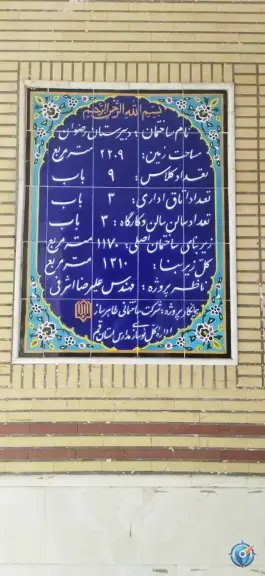 بسم الله الرحمن الرحیم
نام ساختمان: دبیرستان رضوان
مساحت زمین: ۲۲۰۹ مترمربع
تعداد کلاس: ۹ باب
تعداد اتاق اداری: ۳ باب
تعداد سالن و کارگاه: ۳ باب
زیربنای ساختمان اصلی: ۱۱۷۰ مترمربع
کل زیربنا: ۱۳۱۰ مترمربع
ناظر پروژه: مهندس علیرضا اشرفی
پیمانکار پروژه: شرکت ساختمانی طاهرساز
اداره کل نوسازی مدارس استان قم